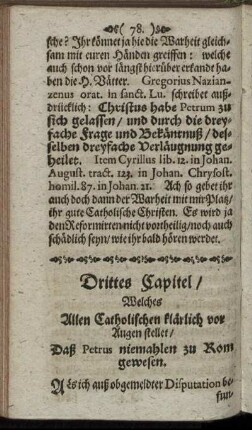 ( 78. )
sche? Ihr könnet ja hie die Warheit gleich-
sam mit euren Händen greiffen: welche
auch schon vor längst hierüber erkandt ha-
ben die H. Vätter. Gregorius Nazian-
zenus orat. in sanct. Lu. schreibet auß-
drücklich: Christus habe Petrum zu
sich gelassen/ und durch die drey-
fache Frage und Bekäntnuß/ des-
selben dreyfache Verläugnung ge-
heilet. Item Cyrillus lib. 12. in Johan.
August. tract. 123. in Johan. Chrysost.
homil. 87. in Johan. 21. Ach so gebet ihr
auch doch dann der Warheit mit mir Platz/
ihr gute Catholische Christen. Es wird ja
den Reformirten nicht vortheilig/ noch auch
schädlich seyn/ wie ihr bald hören werdet.
Drittes Capitel/
Welches
Allen Catholischen klärlich vor
Augen stellet/
Daß Petrus niemahlen zu Rom
gewesen.
Als ich auß obgemeldter Disputation be-
fun-